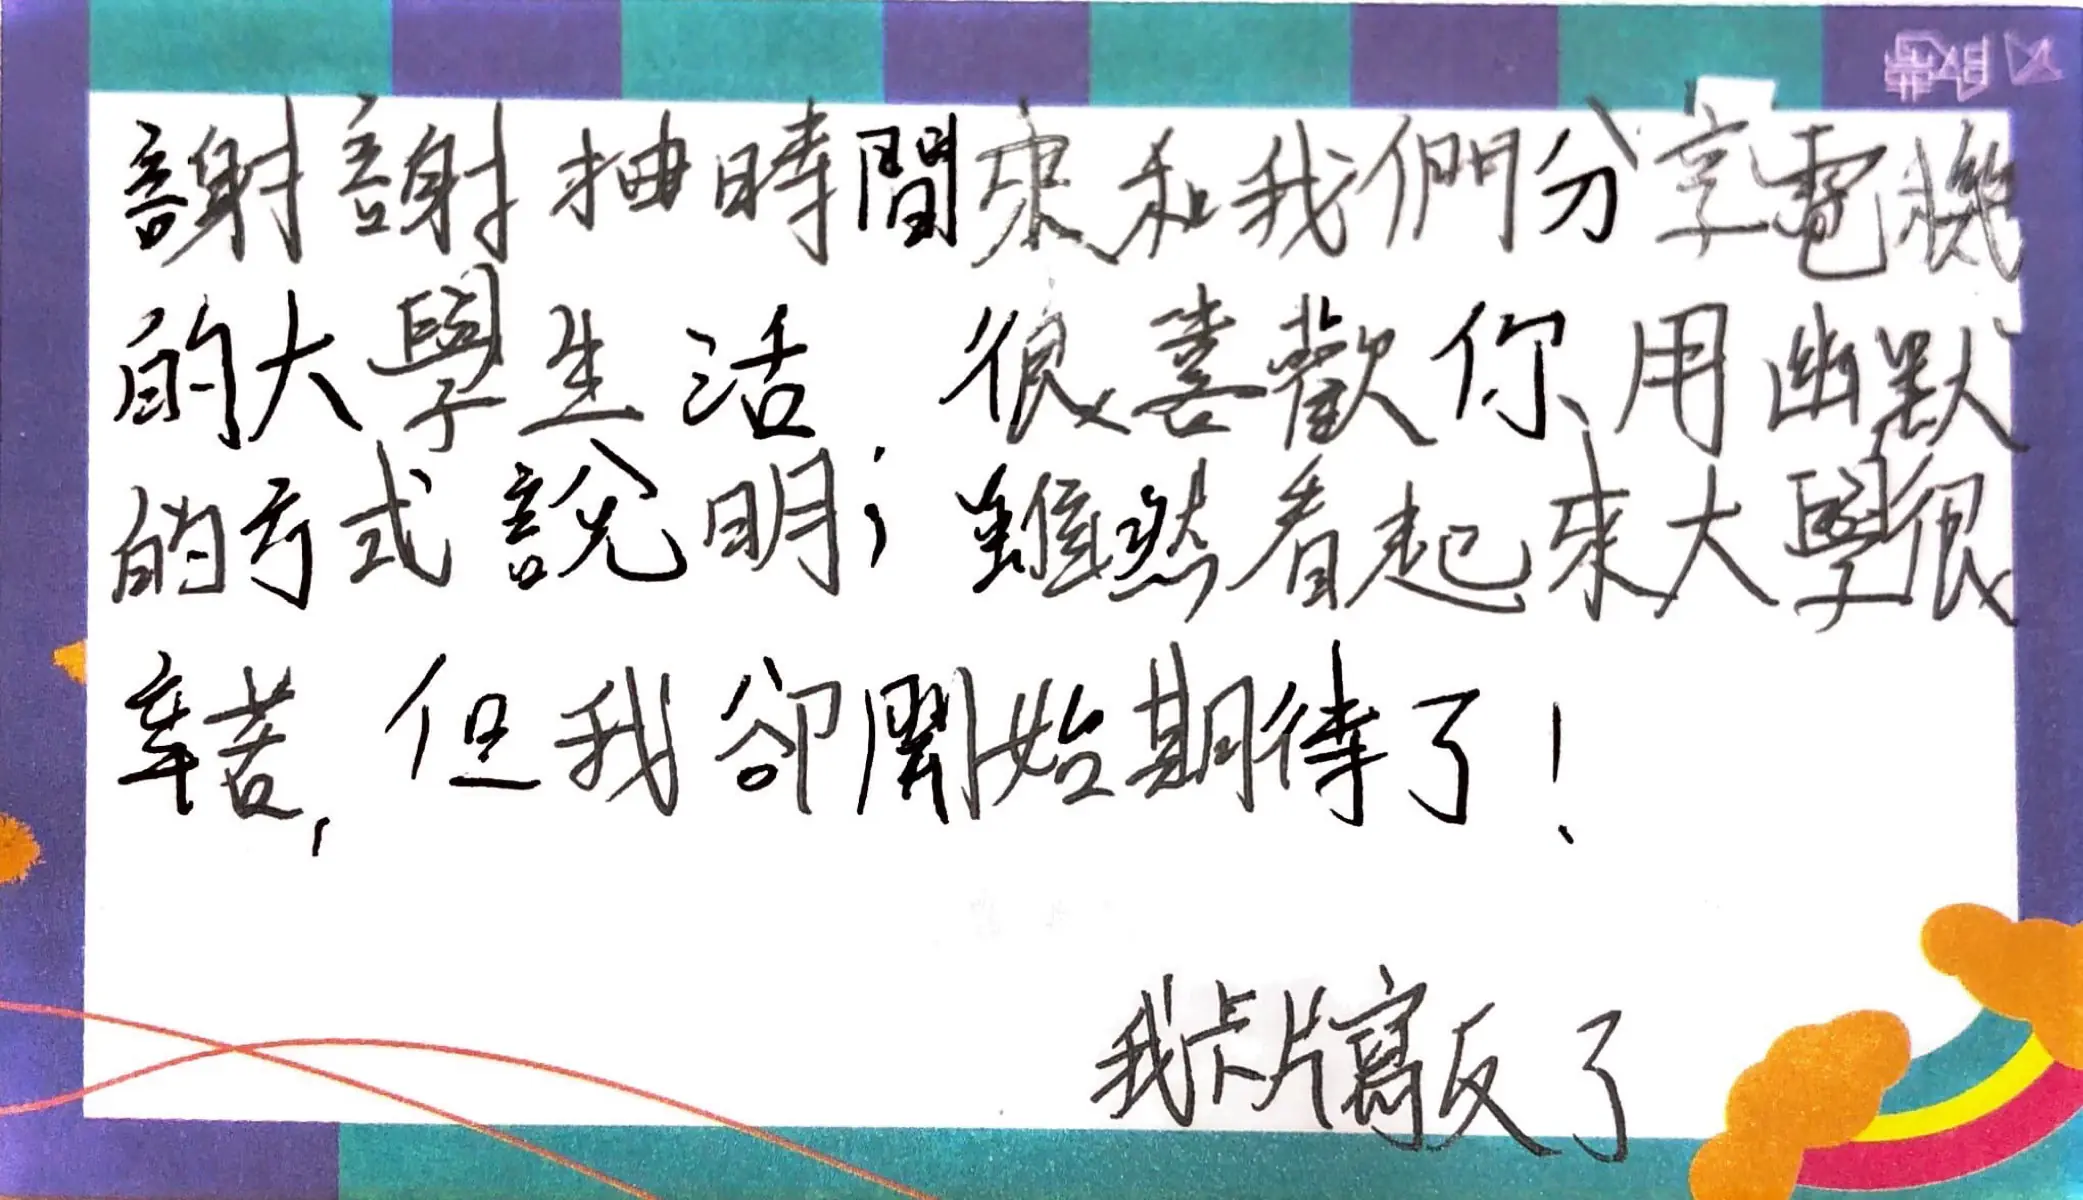 謝謝抽時間來和我們分享電機
的大學生活,很喜歡你用幽默
的方式說明;雖然看起來大學很
辛苦,但我卻開始期待了!
我卡片寫反了